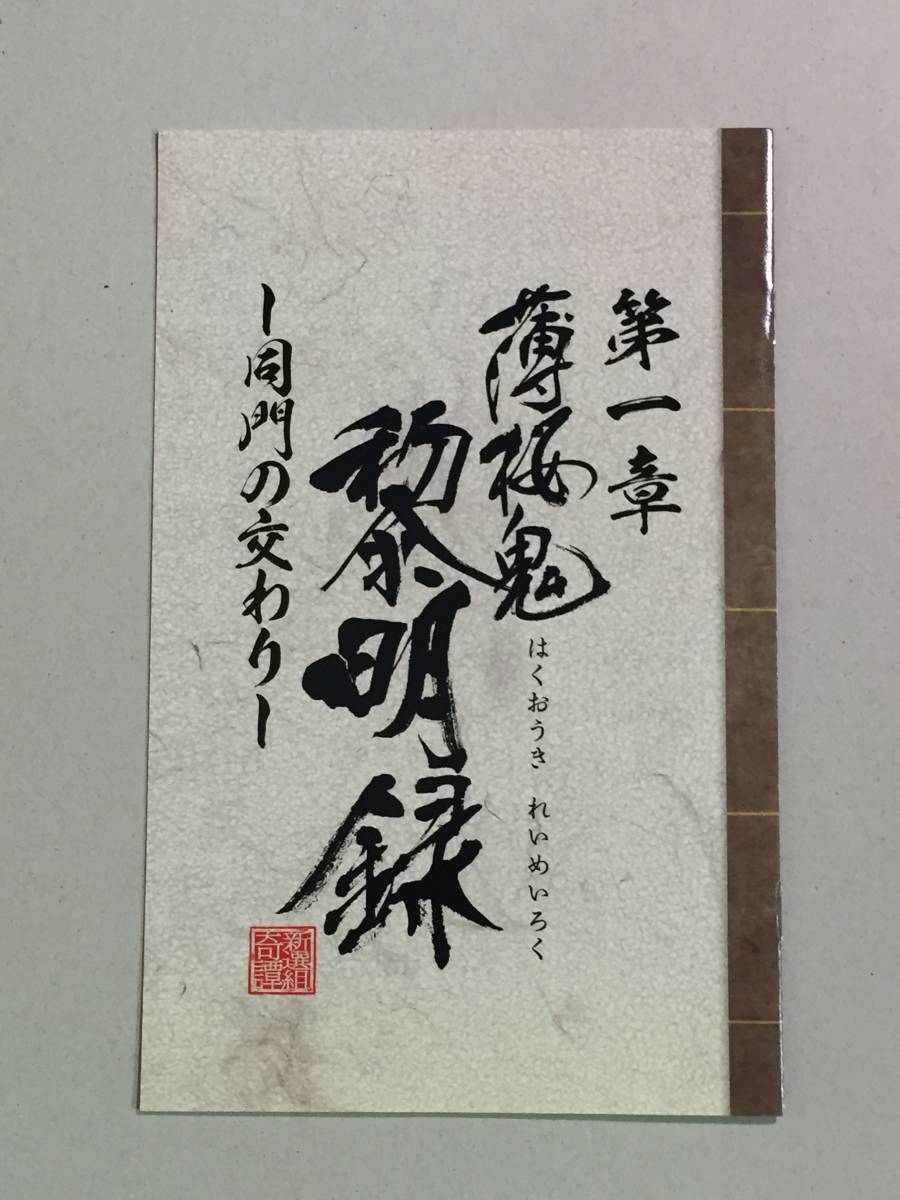 第一章
薄桜鬼
はくおうき れいめいろく
黎明録
ー同門の交わりー
新選組
奇譚